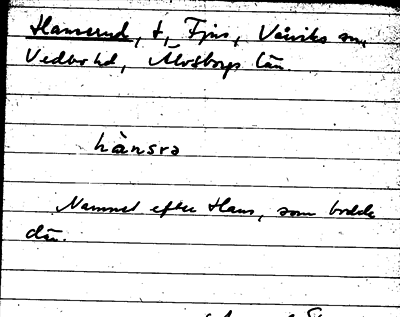 Hanserud, t, Fjus, Vårviks sn,
Vedbo hd, Älvsborgs län
hànsrə
Namnet efter Hans, som bodde
där.